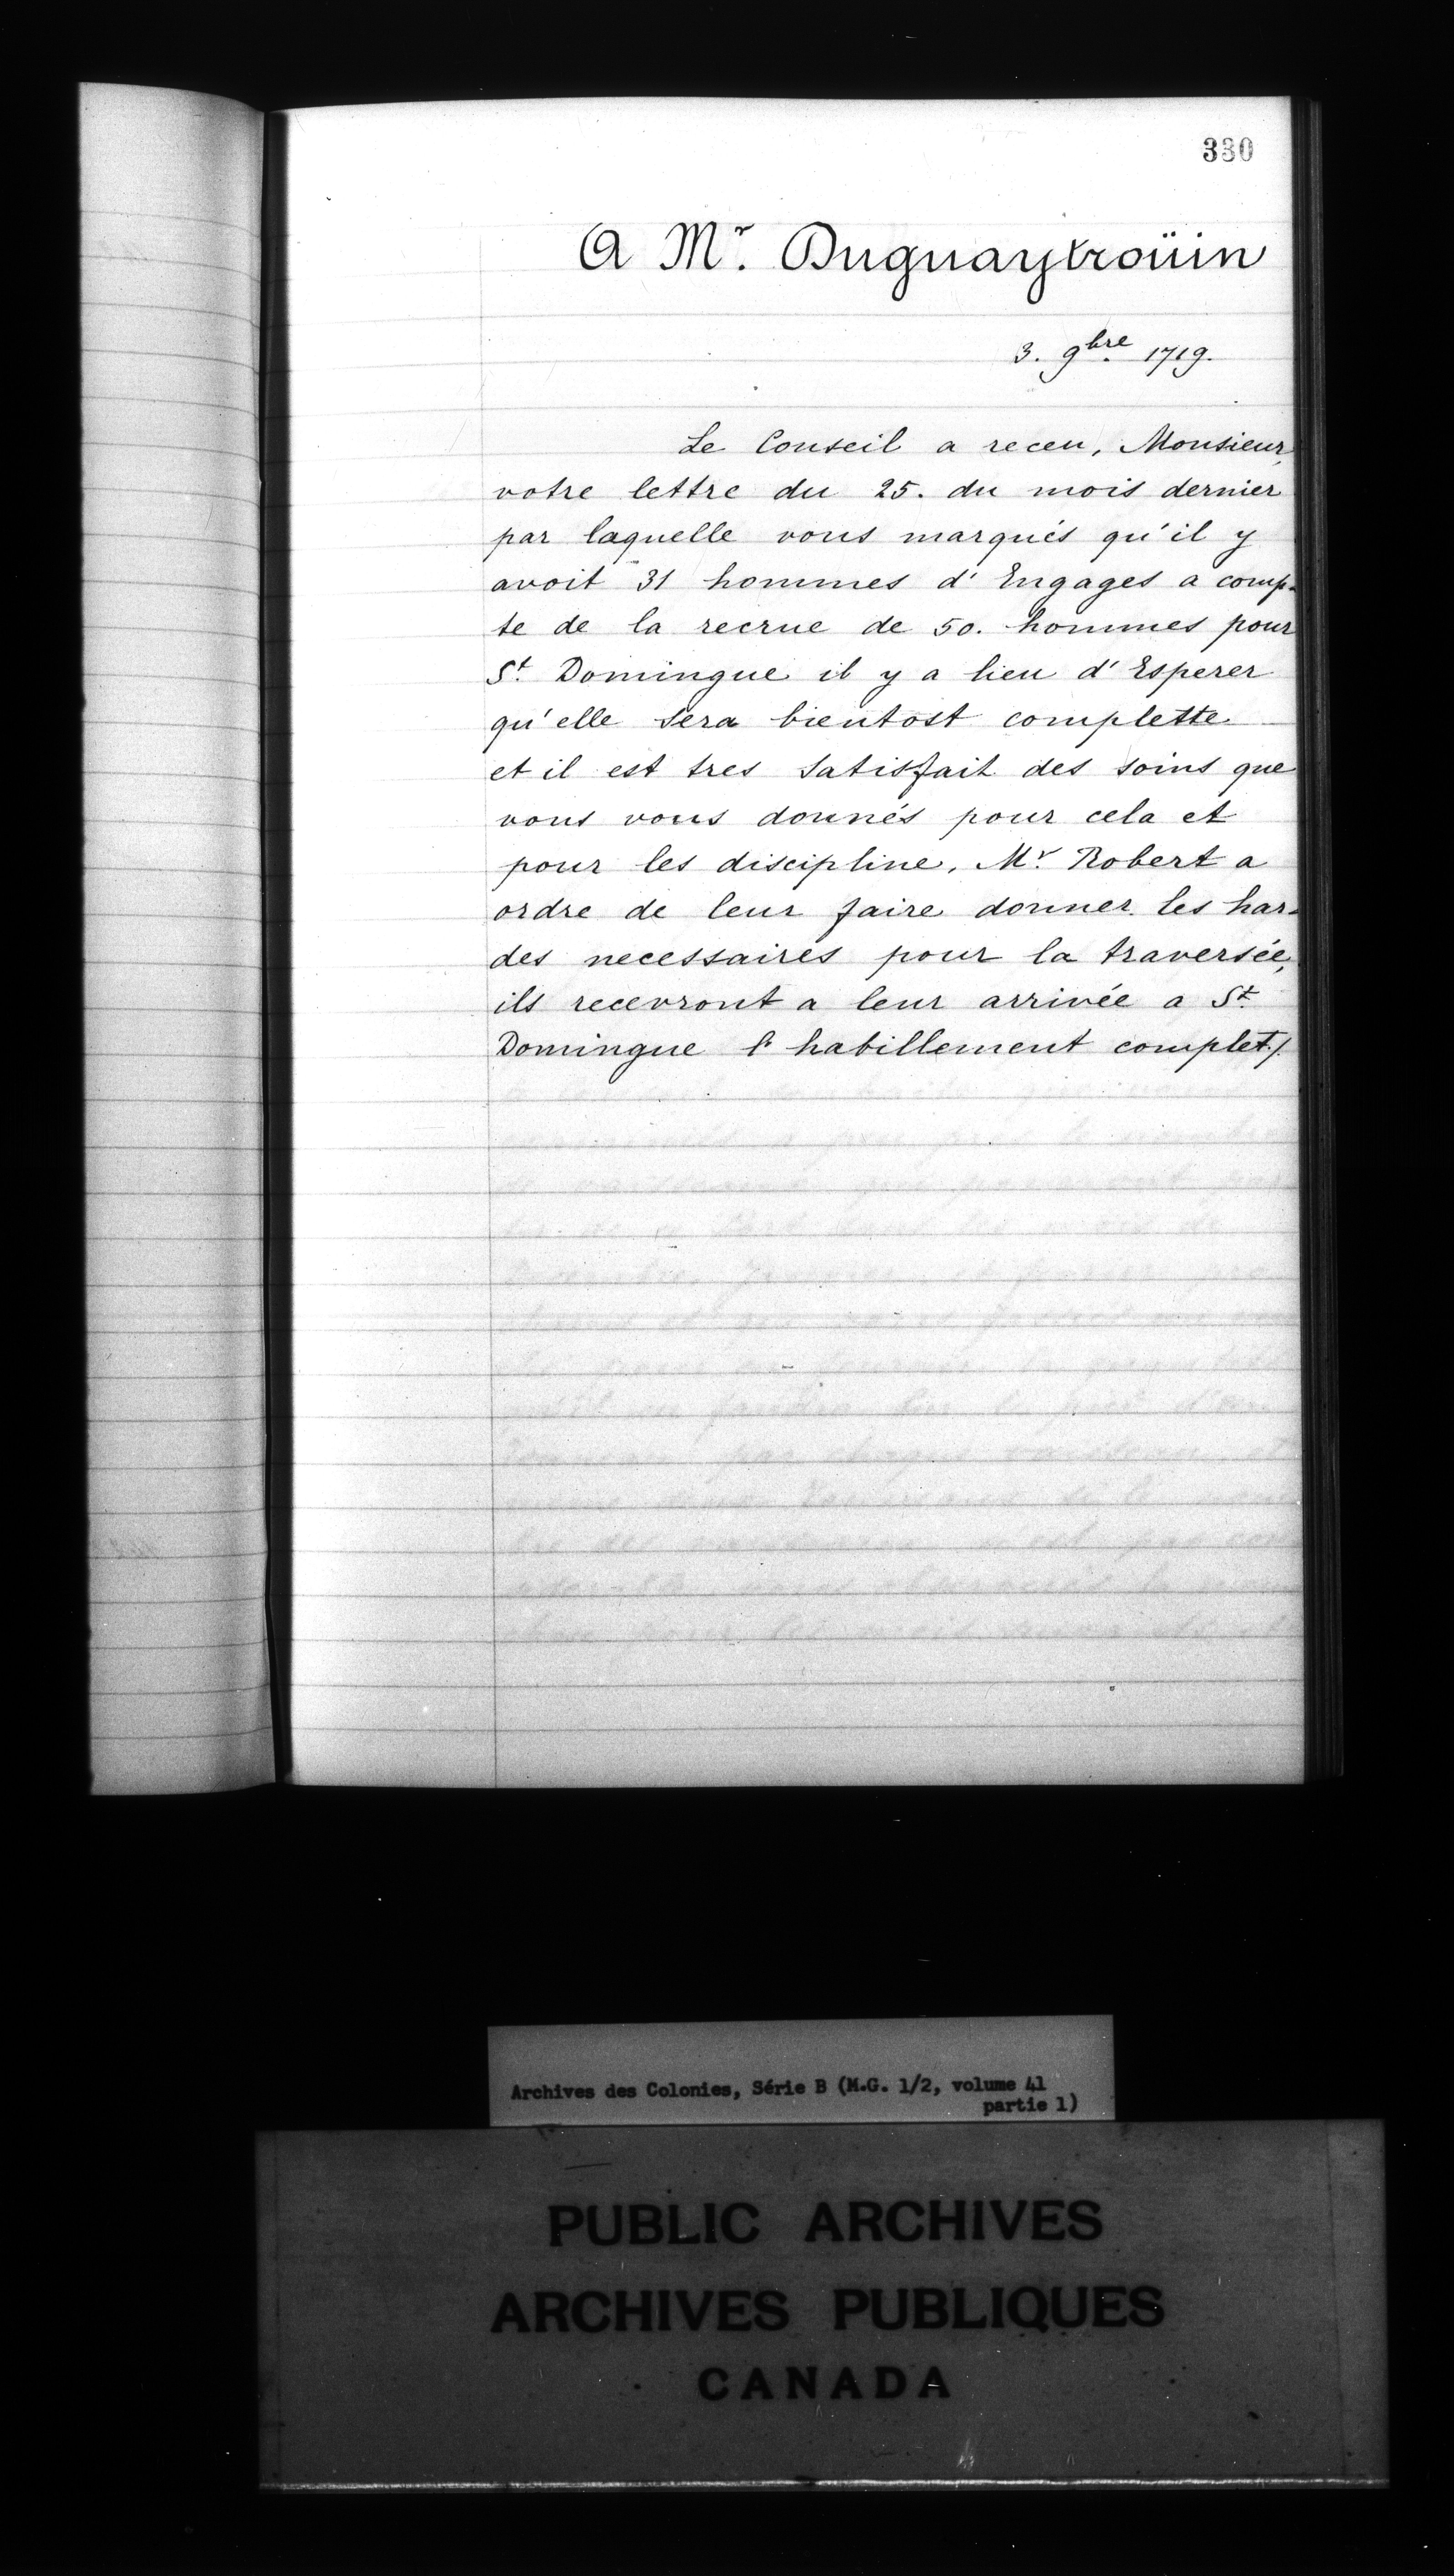 330
A Mr. Duguaytroüin
3. 9bre. 1719.
Le Conseil a receu, Monsieur,
votre lettre du 25. du mois dernier
par laquelle vous marqués qu'il y
avoit 31 hommes d'Engages a comp-
te de la recrue de 50. hommes pour
St. Domingue il y a lieu d'Esperer
qu'elle sera bientost complette
et il est tres satisfait des soins que
vous vous donnés pour cela et
pour les discipline, Mr. Robert a
ordre de leur faire donner les har-
des necessaires pour la traversée,
ils recevront a leur arrivée a St.
Domingue l'habillement complet./.
Archives des Colonies, Série B (M.G. 1/2, volume 41
partie 1)
PUBLIC ARCHIVES
ARCHIVES PUBLIQUES
CANADA